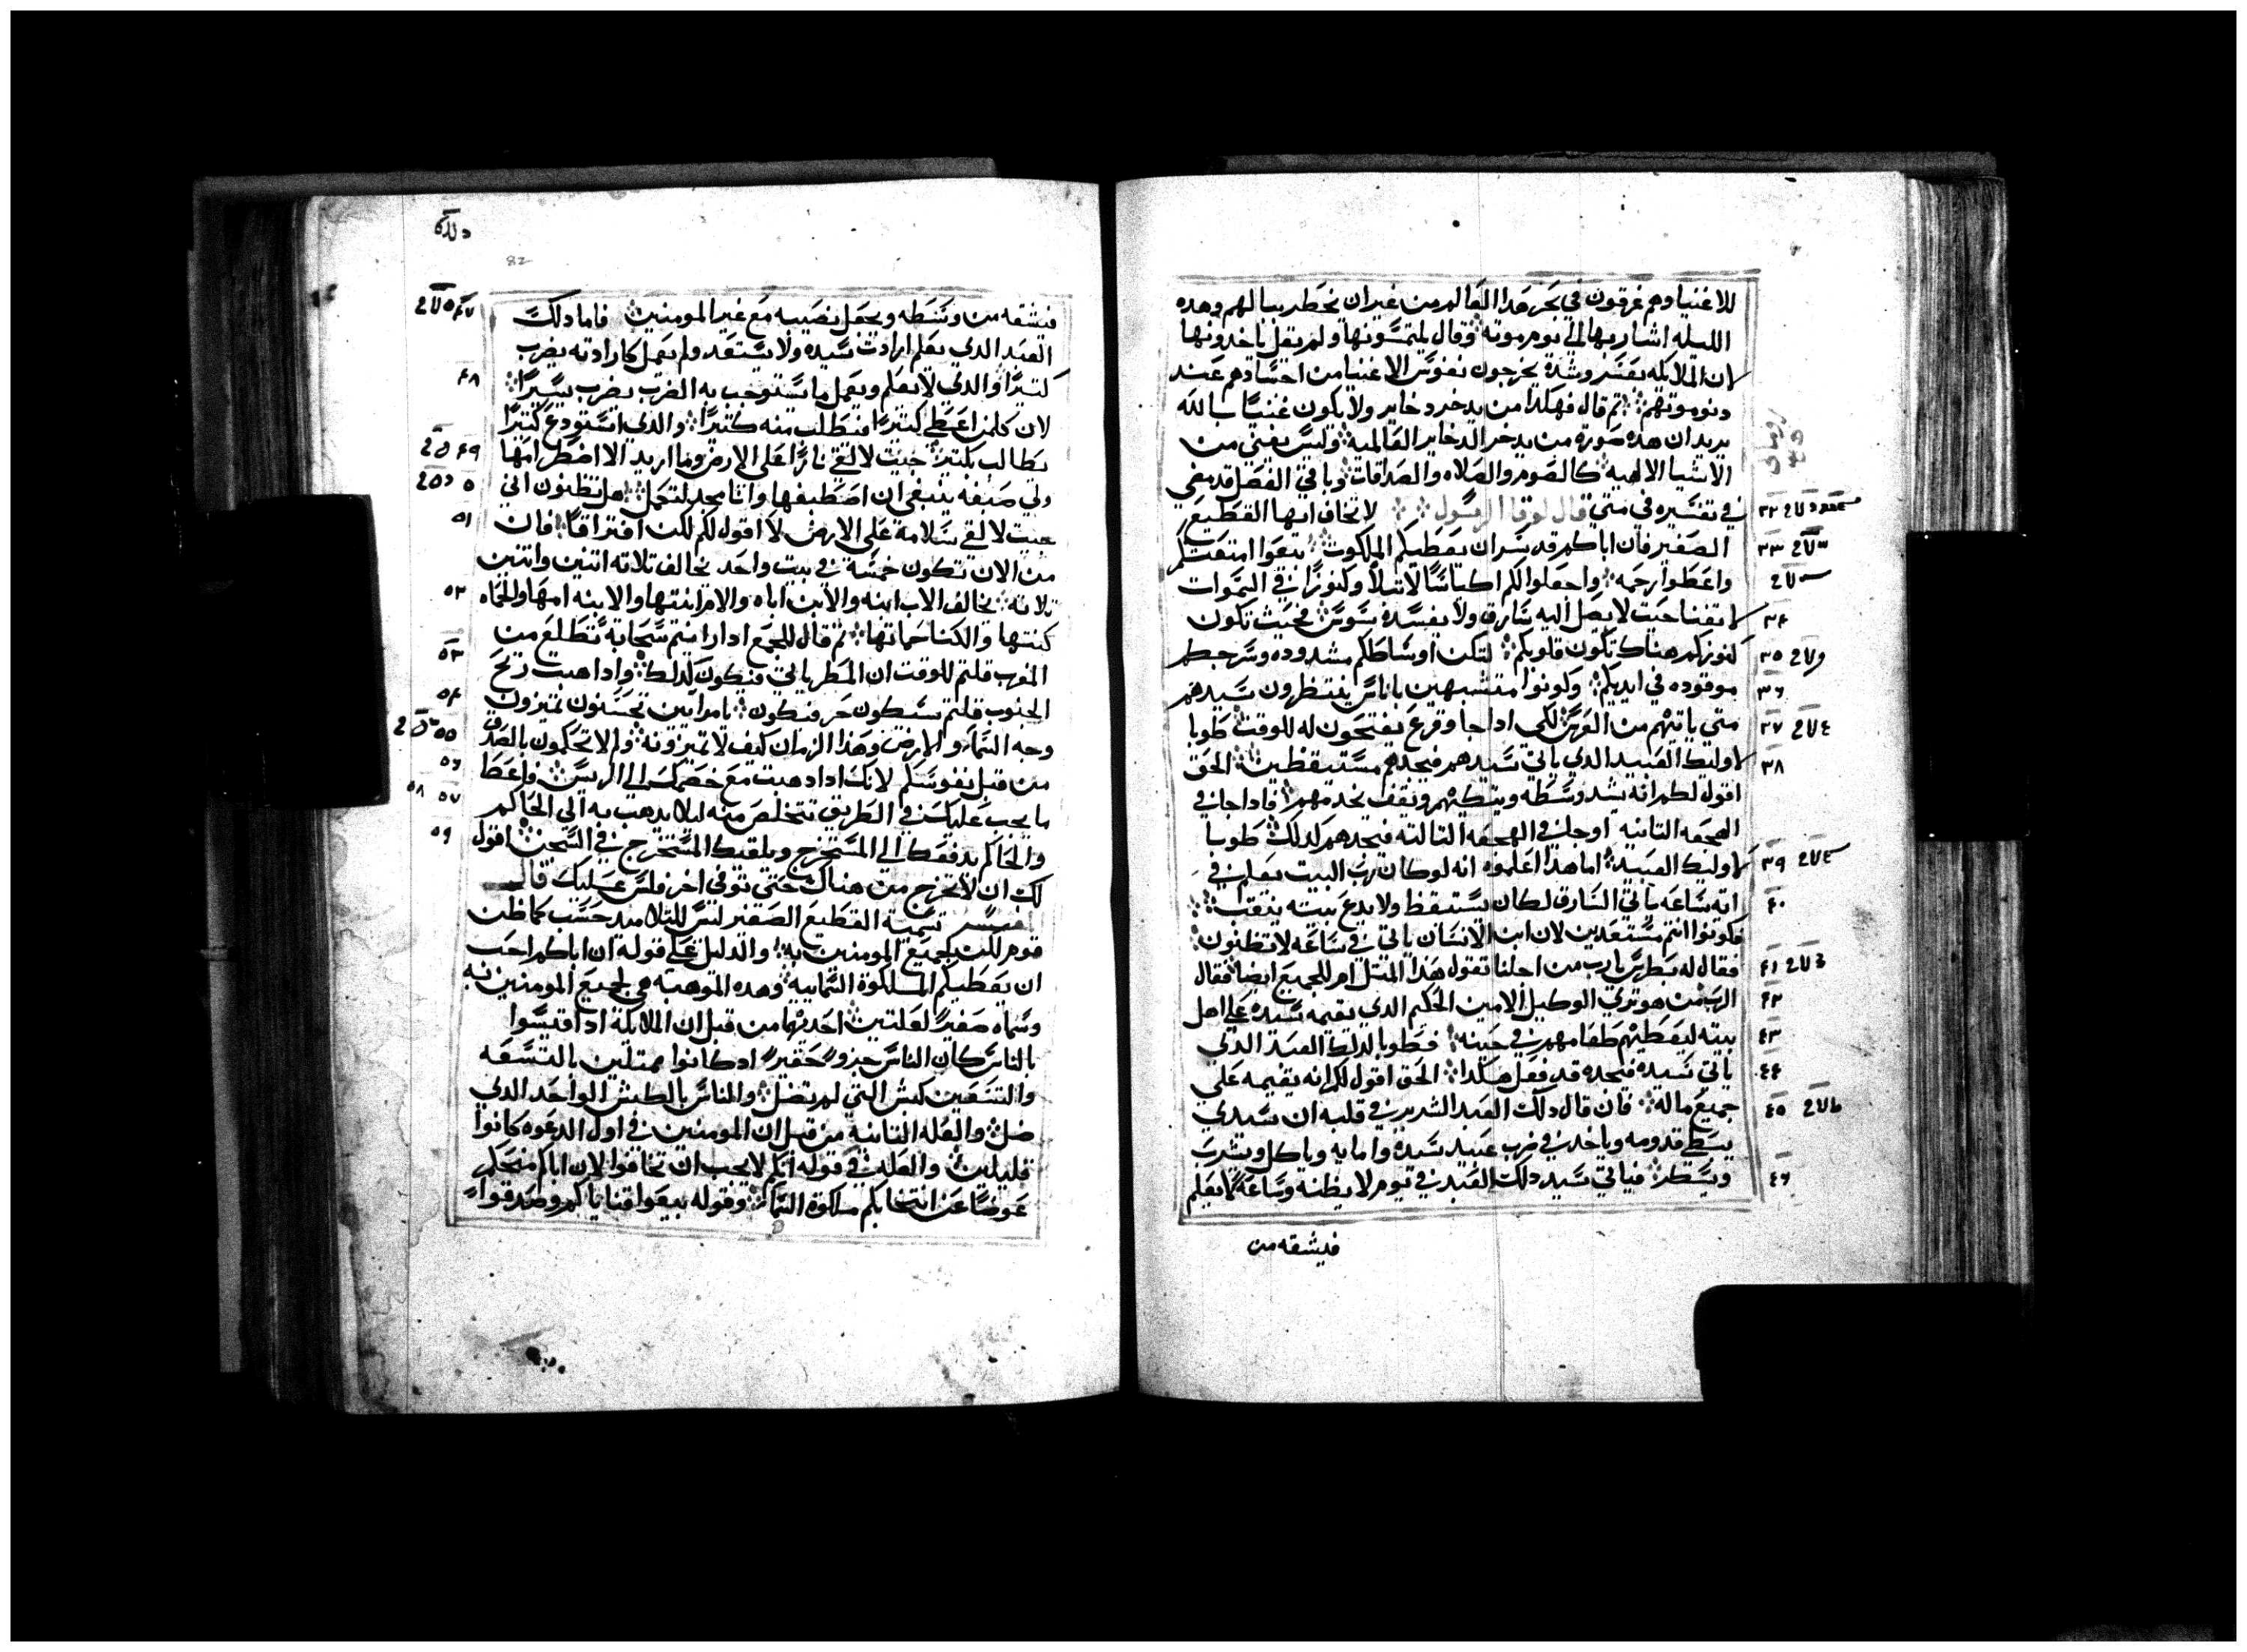 للاغنيا وهم غرقون في بحر هدا العالم من غير ان يخطر ببالهم وهده
الليله اشار بها الى يوم موته وقال يلتمسونها ولم يقل ياخدونها
لان الملايكه بقسر وشدة يخرجون نفوس الاغنيا من اجسادهم عند
دنو موتهم ثم قال فهكدا من يدخر دخاير ولا يكون غنيا بالله
يريد ان هده صورة من يدخر الدخاير العالمية وليس يغني من
الاشيا الالهية كالصوم والصلاه والصدقات وباقي الفصل قد مضى
في تفسيره في متي قال لوقا الرسول لا تخاف ايها القطيع
الصغير فان اباكم قد سر ان يعطيكم الملكوت بيعوا امتعتكم
واعطوا رحمه واجعلوا لكم اكياسا لا تبلا وكنوزا في السموات
لا تفنا حيت لا يصل اليه سارق ولا يفسده سوس فحيث تكون
كنوزكم هناك تكون قلوبكم لتكن اوساطكم مشدوده وسرجكم
موقوده في ايديكم وكونوا متشبهين باناس ينتظرون سيدهم
متى ياتيهم من العرس لكى ادا جا وقرع يفتحون له للوقت طوبا
لاوليك العبيد الدي ياتي سيدهم فيجدهم مستيقظين الحق
اقول لكم انه يشد وسطه ويتكيهم ويقف يخدمهم فادا جا في
الهجعه التانيه او جا في الهجعه التالته فيجدهم كدلك طوبا
لاوليك العبيد اما هدا اعلموه انه لو كان رب البيت يعلم في
ايه ساعه ياتي السارق لكان يستيقظ ولا يدع بيته ينقب
فكونوا انتم مستعدين لان ابن الانسان ياتي في ساعه لا تظنون
فقال له بطرس يارب من اجلنا تقول هدا المتل ام للجميع ايضا فقال
الرب من هو ترى الوكيل الامين الحكيم الدي يقيمه سيده على اهل
بيته ليعطيهم طعامهم في حينه فطوبا لدلك العبد الدي
ياتي سيده فيجده قد فعل هكدا الحق اقول لكم انه يقيمه على
جميع ماله فان قال دلك العبد الشرير في قلبه ان سيدي
يبطي قدومه وياخد في ضرب عبيد سيده وامايه وياكل ويشرب
ويسكر فياتي سيد دلك العبد في يوم لا يظنه وساعة لا يعلم
فيشقه من
٣٢
٣٣
٣٤
٣٥
٣٦
٣٧
٣٨
٣٩
٤٠
٤١
٤٢
٤٣
٤٤
٤٥
٤٦
82
فيشقه من وسطه ويجعل نصيبه مع غير المومنين فاما دلك
العبد الدي يعلم ارادت سيده ولا يستعد ولم يعمل كارادته يضرب
كتيرا والدي لا يعلم ويعمل ما يستوجب به الضرب يضرب يسيرا
لان كل من اعطي كتيرا فيطلب منه كتيرا والدي استودع كتيرا
يطالب بكتير جيت لالقي نارا على الارض وما اريد الا اضطرامها
ولي صبغه ينبغي ان اصطبغها وانا مجد لتكمل هل تظنون اني
جيت لالقي سلامة على الارض لا اقول لكم لكن افتراقا فان
من الان تكون خمسة في بيت واحد يخالف تلاته اتنين واتنين
تلاته يخالف الاب ابنه والابن اباه والام ابنتها والابنه امها والحماه
كنتها والكنا حماتها تم قال للجمع ادا رايتم سحابة تطلع من
المغرب قلتم للوقت ان المطر ياتي فيكون كدلك وادا هبت ريح
الجنوب قلتم سيكون حر فيكون يا مرايين تحسنون تميزون
وجه السما والارض وهدا الزمان كيف لا تميزونه ولم لا تحكمون بالصدق
من قبل نفوسكم لانك ادا دهبت مع خصمك الى الريس فاعط
ما يجب عليك في الطريق تتخلص منه ليلا يدهب به الى الحاكم
والحاكم يدفعك الى المستخرج ويلقيك المستخرج في السجن اقول
لك ان لا تخرج من هناك حتى توفي اخر فلس عليك قال
المفسر تسمية القطيع الصغير ليس للتلاميد حسب كما ظن
قوم لكن لجميع المومنين به والدليل على قوله ان اباكم احب
ان يعطيكم الملكوة السمايية وهده الموهبة هي لجميع المومنين به
وسماه صغيرا لعلتين احديهما من قبل ان الملايكة ادا قيسوا
بالناس كان الناس جزو حقير اد كانوا ممتلين بالتسعه
والتسعين كبش التي لم تضل والناس بالكبش الواحد الدي
ضل والعله التانيه من قبل ان المومنين في اول الدعوه كانوا
قليلين والعله في قوله انكم لا يجب ان تخافوا لان اباكم منحكم
عوضا عن اتعابكم ملكوة السما وقوله بيعوا قناياكم وصدقوا
٤٧
٤٨
٤٩
٥٠
٥١
٥٢
٥٣
٥٤
٥٥
٥٦
٥٧ ٥٨
٥٩